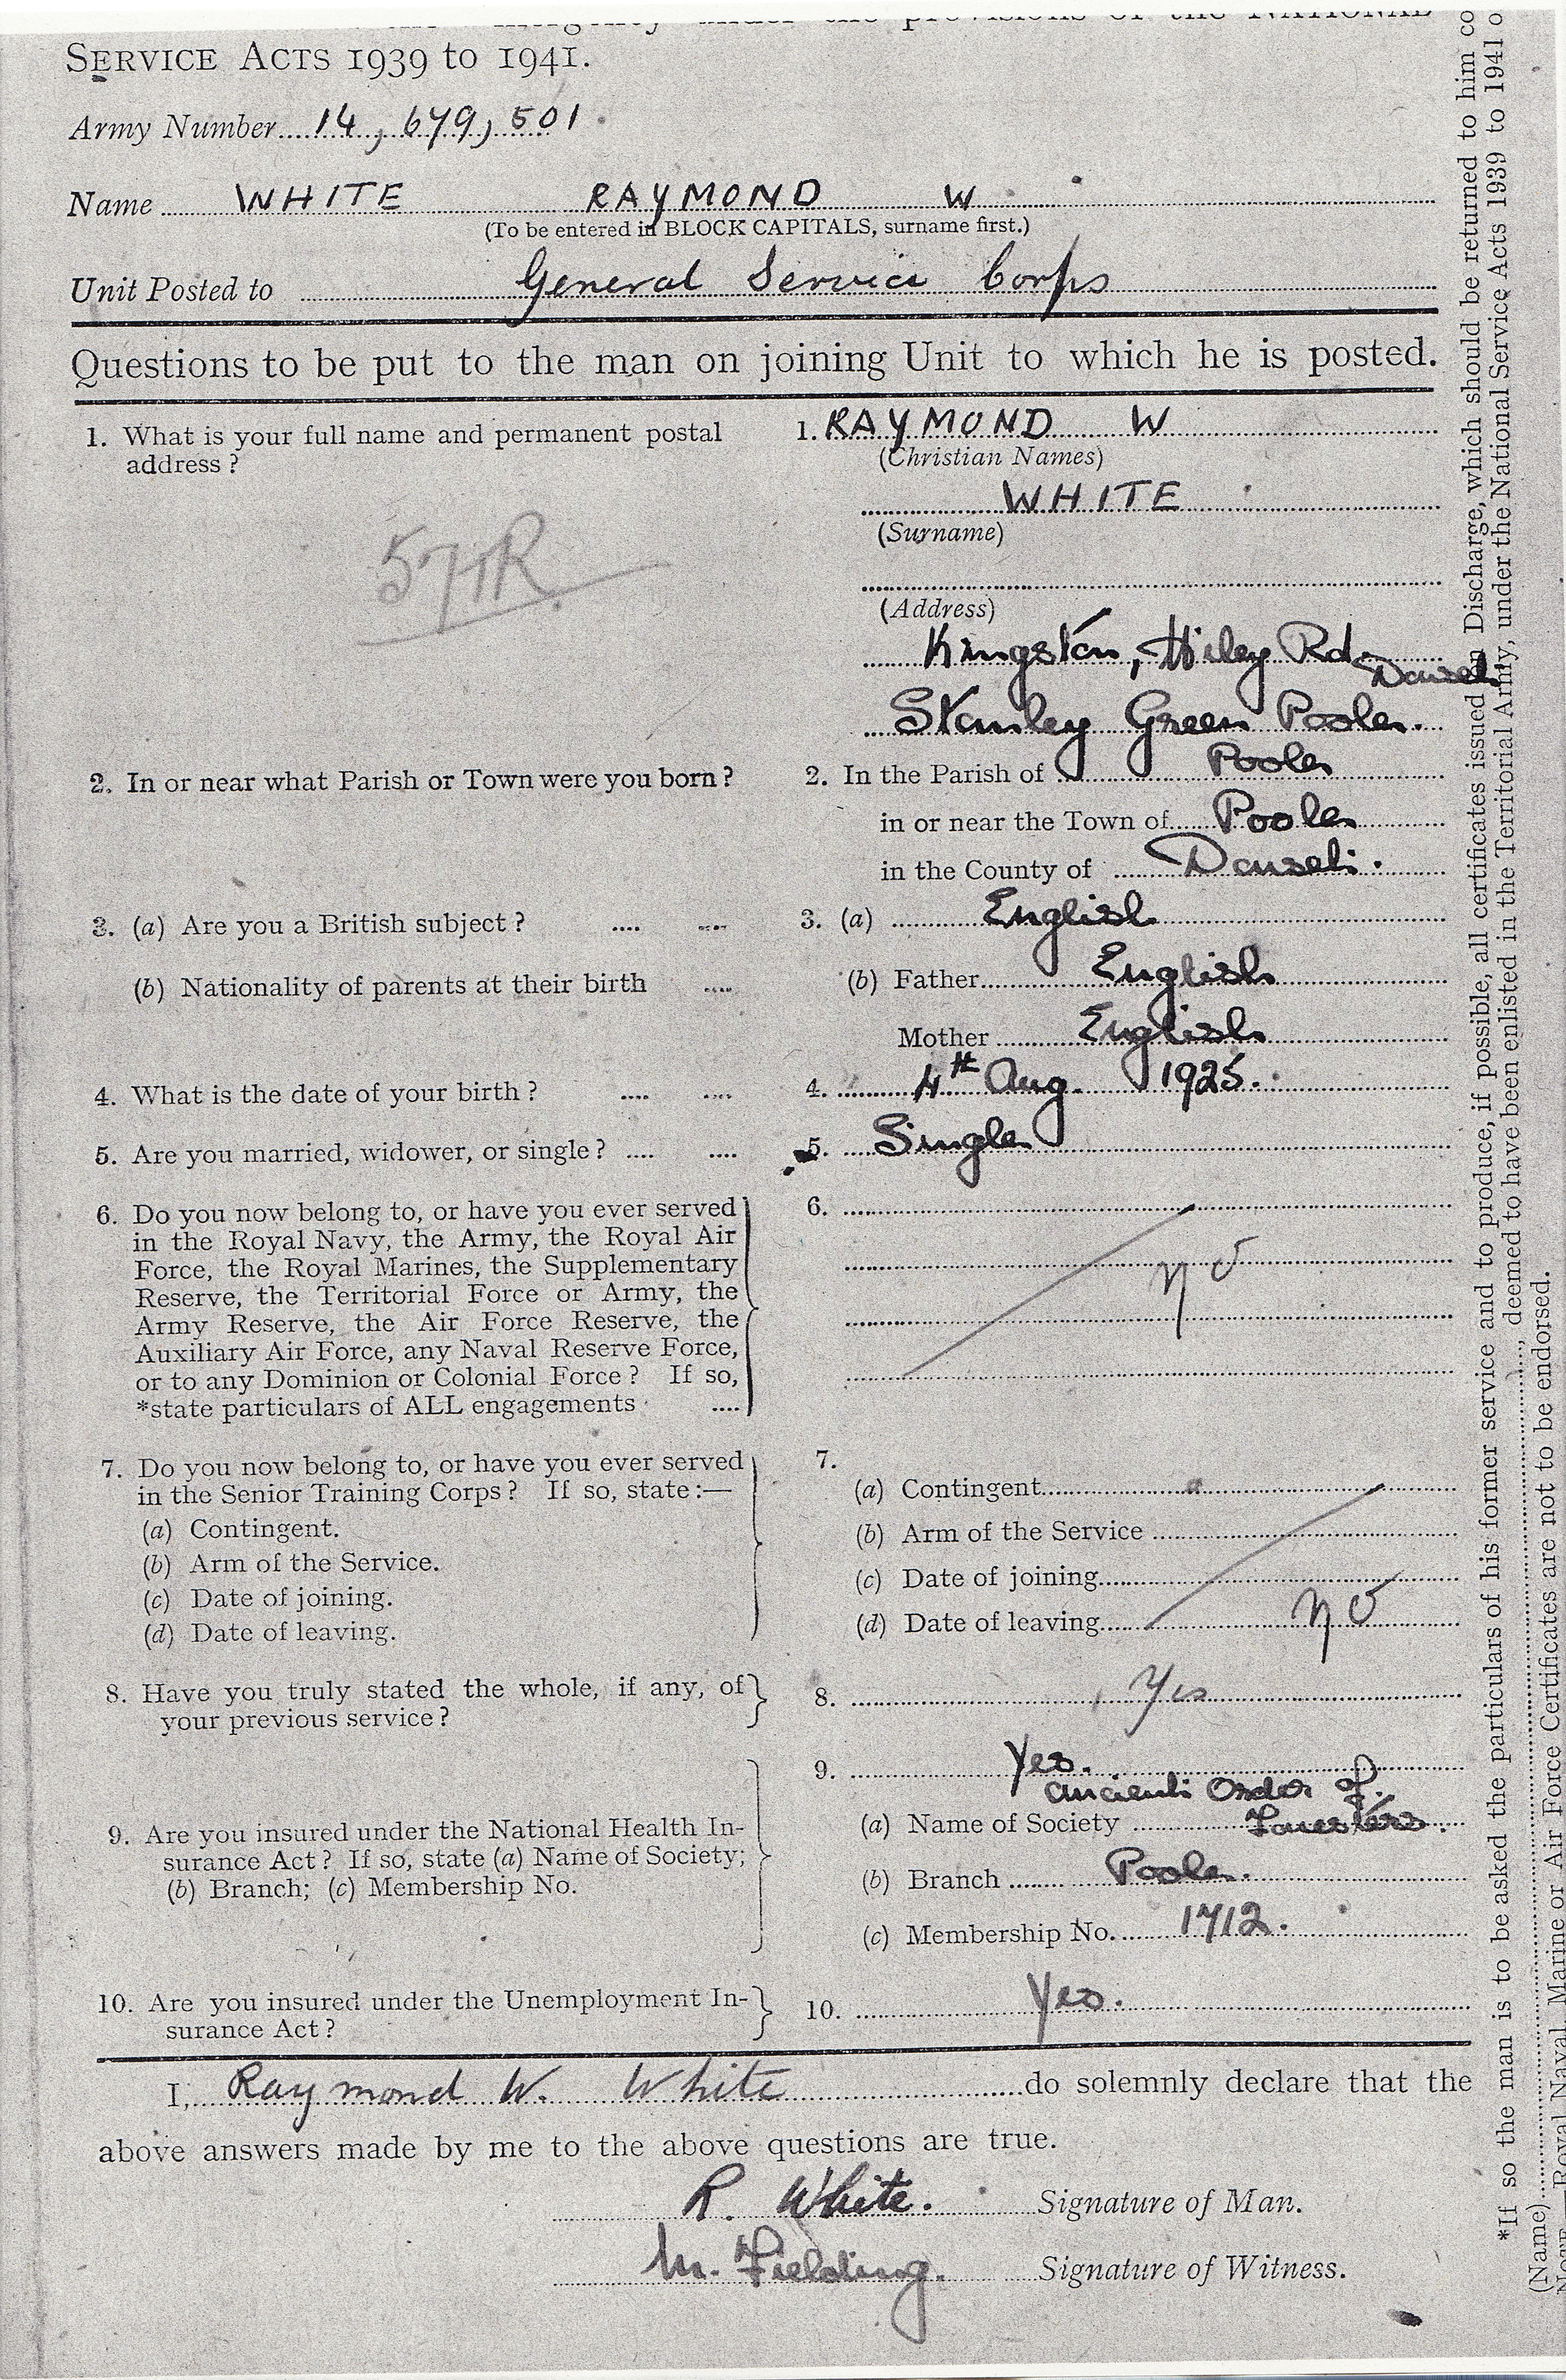 SERVICE ACTS 1939 to 1941.
Army Number....14, 679, 501
Name WHITE RAYMOND W
(To be entered in BLOCK CAPITALS, surname first.)
Unit Posted to General Service Corps
Questions to be put to the man on joining Unit to which he is posted.
1. What is your full name and permanent postal
address?
1. RAYMOND W
(Christian Names)
WHITE
(Surname)
(Address)
Kingston, Hiley Rd.
Dorset
Stanley Green Poole.
57HR
2. In or near what Parish or Town were you born?
2. In the Parish of Poole
in or near the Town of Poole
in the County of Dorset.
3. (a) Are you a British subject?
3. (a) English
(b) Nationality of parents at their birth
(b) Father English
Mother English
4. What is the date of your birth?
4. 4th Aug. 1925.
5. Are you married, widower, or single?
5. Single
6. Do you now belong to, or have you ever served
in the Royal Navy, the Army, the Royal Air
Force, the Royal Marines, the Supplementary
Reserve, the Territorial Force or Army, the
Army Reserve, the Air Force Reserve, the
Auxiliary Air Force, any Naval Reserve Force,
or to any Dominion or Colonial Force? If so,
*state particulars of ALL engagements
6.
no
7. Do you now belong to, or have you ever served
in the Senior Training Corps? If so, state:—
(a) Contingent.
(b) Arm of the Service.
(c) Date of joining.
(d) Date of leaving.
7.
(a) Contingent
(b) Arm of the Service
(c) Date of joining
(d) Date of leaving no
8. Have you truly stated the whole, if any, of
your previous service?
8. Yes
9. Are you insured under the National Health In-
surance Act? If so, state (a) Name of Society;
(b) Branch; (c) Membership No.
9. Yes.
Ancient Order of
(a) Name of Society Foresters.
(b) Branch Poole.
(c) Membership No. 1712.
10. Are you insured under the Unemployment In-
surance Act?
10. Yes.
I, Raymond W. White do solemnly declare that the
above answers made by me to the above questions are true.
R. White. Signature of Man.
M. Fielding. Signature of Witness.
*If so the man is to be asked the particulars of his former service and to produce, if possible, all certificates issued on Discharge, which should be returned to him
(Name) , deemed to have been enlisted in the Territorial Army, under the National Service Acts 1939 to 1941
Royal Naval, Marine or Air Force Certificates are not to be endorsed.